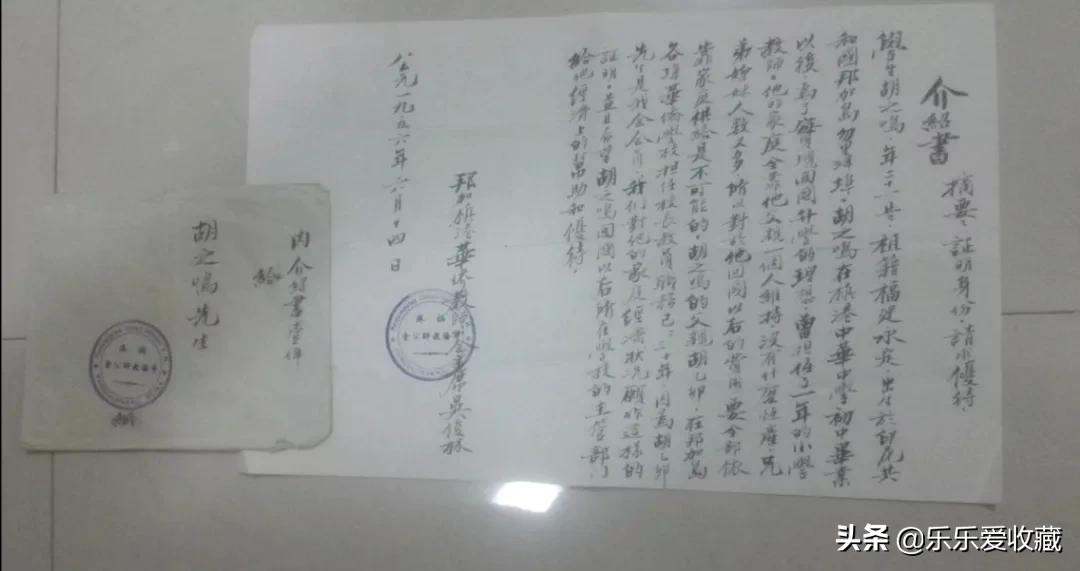 介紹書
摘要：証明身份，請求優待，
學生胡之鳴，年二十一岁，祖籍福建永定，出生於印尼共
和國邦加島勿里洋埠，胡之鳴在檳港中華中學初中畢業
以後，為了實現回國升學的理想，曾担任了一年的小學
教師，他的家庭全靠他父親一個人維持，没有什麼恒產，兄
弟姊妹人数又多，所以對於他回國以后的費用要全部依
靠家庭供給是不可能的，胡之鳴的父親胡乙卯，在邦加島
各埠華僑學校担任校長教員職務已二十年，因為胡乙卯
先生是我公會會員，我们對他的家庭經濟狀況願作這樣的
証明，並且希望胡之鳴回國以后所在學校的主管部门
給他經濟上的幫助和優待，
邦加檳港華僑教師公會主席吳俊林
公元一九五六年六月十四日
內介紹書壹件
給
胡之鳴先生
檳港
華僑教師公會
檳港
華僑教師公會
头条 @乐乐爱收藏